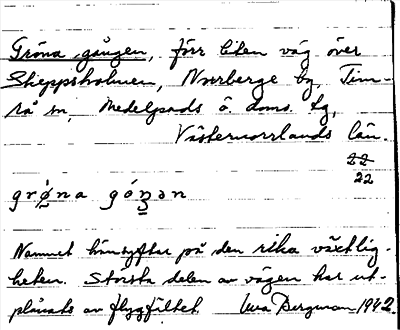 Gröna gången, förr liten väg över
Skeppsholmen, Norrberge by, Tim-
rå sn, Medelpads ö. doms. tg,
Västernorrlands län.
22
22
grǿ̀na góŋən
Namnet hänsyftar på den rika växtlig-
heten. Största delen av vägen har ut-
plånats av flygfältet. Bergman 1942.